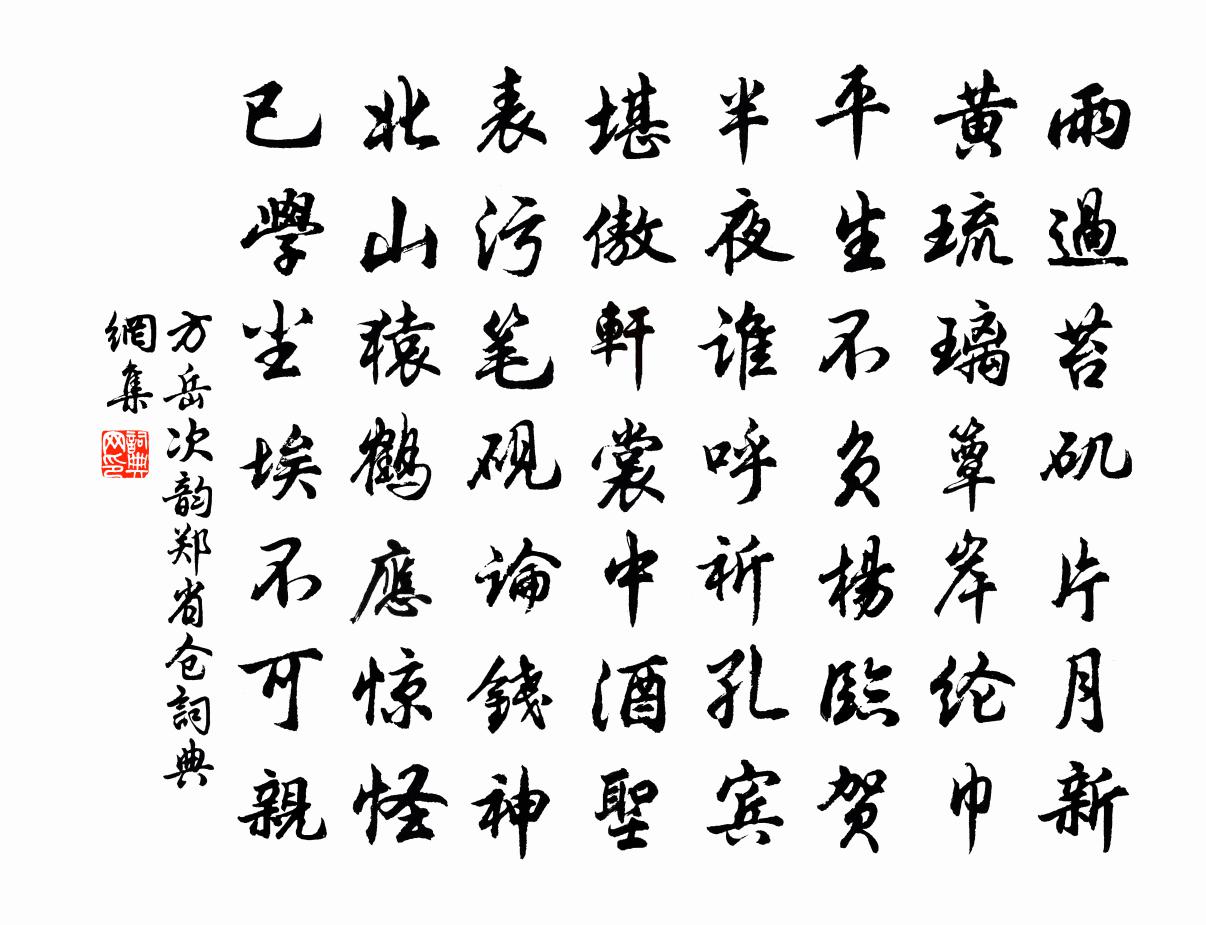 雨過苔矶片月新
黄琉璃簟岸纶巾
平生不负楊臨贺
半夜谁呼祈孔宾
堪傲軒裳中酒聖
表污笔砚論錢神
北山猿鶴應惊怪
已學尘埃不可親
方岳次韵郑省仓詞典
網集
詞典
网印